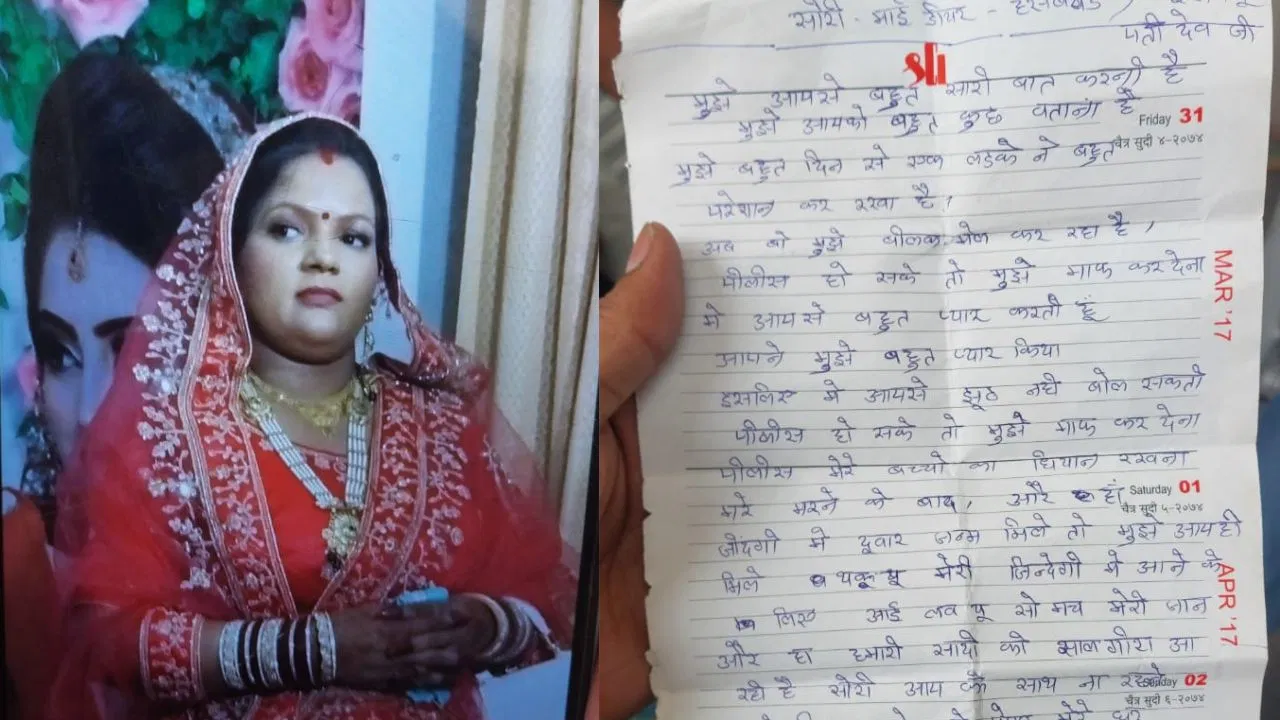 सोरी - माई डीयर -
पती देव जी
sti
मुझे आपसे बहुत सारी बात करनी है
मुझे आपको बहुत कुछ बताना है
Friday 31
चैत्र सुदी ४-२०७४
मुझे बहुत दिन से एक लडके ने बहुत
परेशान कर रखा है,
अब वो मुझे बीलकमेल कर रहा है,
पीलीस हो सके तो मुझे माफ कर देना
MAR '17
मे आपसे बहुत प्यार करती हूं
आपने मुझे बहुत प्यार किया
इसलिए मे आपसे झूठ नही बोल सकती
पीलीस हो सके तो मुझे माफ कर देना
पीलीस मेरे बच्चो का धियान रखना
Saturday 01
चैत्र सुदी ५-२०७४
मेरे मरने के बाद, और हां
जीदगी मे दूवार जन्म मिले तो मुझे आपही
मिले थकू यू मेरी जिन्देगी मे आने के
APR '17
लिए आई लव यू सो मच मेरी जान
और हा हमारी सादी की सालगीरा आ
रही है सोरी आप के साथ ना रहने
02
चैत्र सुदी ६-२०७४